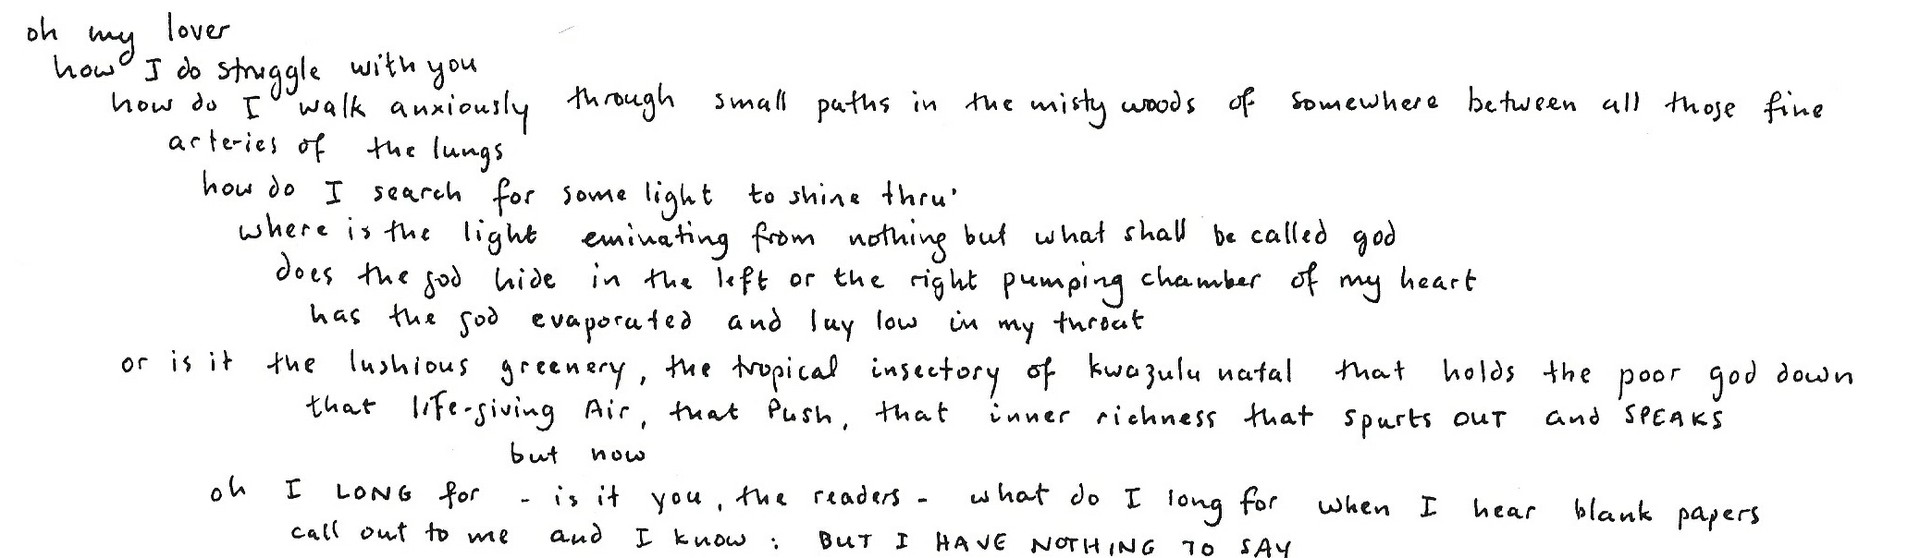 oh my lover
how I do struggle with you
how do I walk anxiously through small paths in the misty woods of somewhere between all those fine
arteries of the lungs
how do I search for some light to shine thru'
where is the light eminating from nothing but what shall be called god
does the god hide in the left or the right pumping chamber of my heart
has the god evaporated and lay low in my throat
or is it the lushious greenery, the tropical insectory of kwazulu natal that holds the poor god down
that life-giving Air, that Push, that inner richness that spurts OUT and SPEAKS
but now
oh I LONG for - is it you, the readers - what do I long for when I hear blank papers
call out to me and I know: BUT I HAVE NOTHING TO SAY